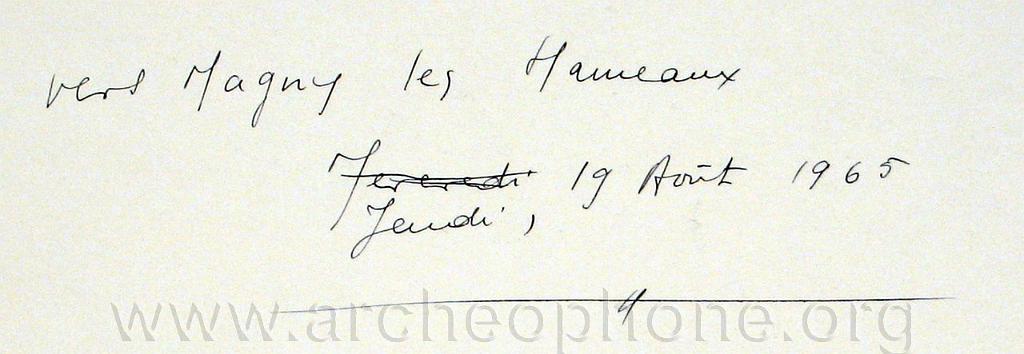 vers Magny les Hameaux
~~Vendredi~~ 19 Août 1965
Jeudi,
4
www.archeophone.org